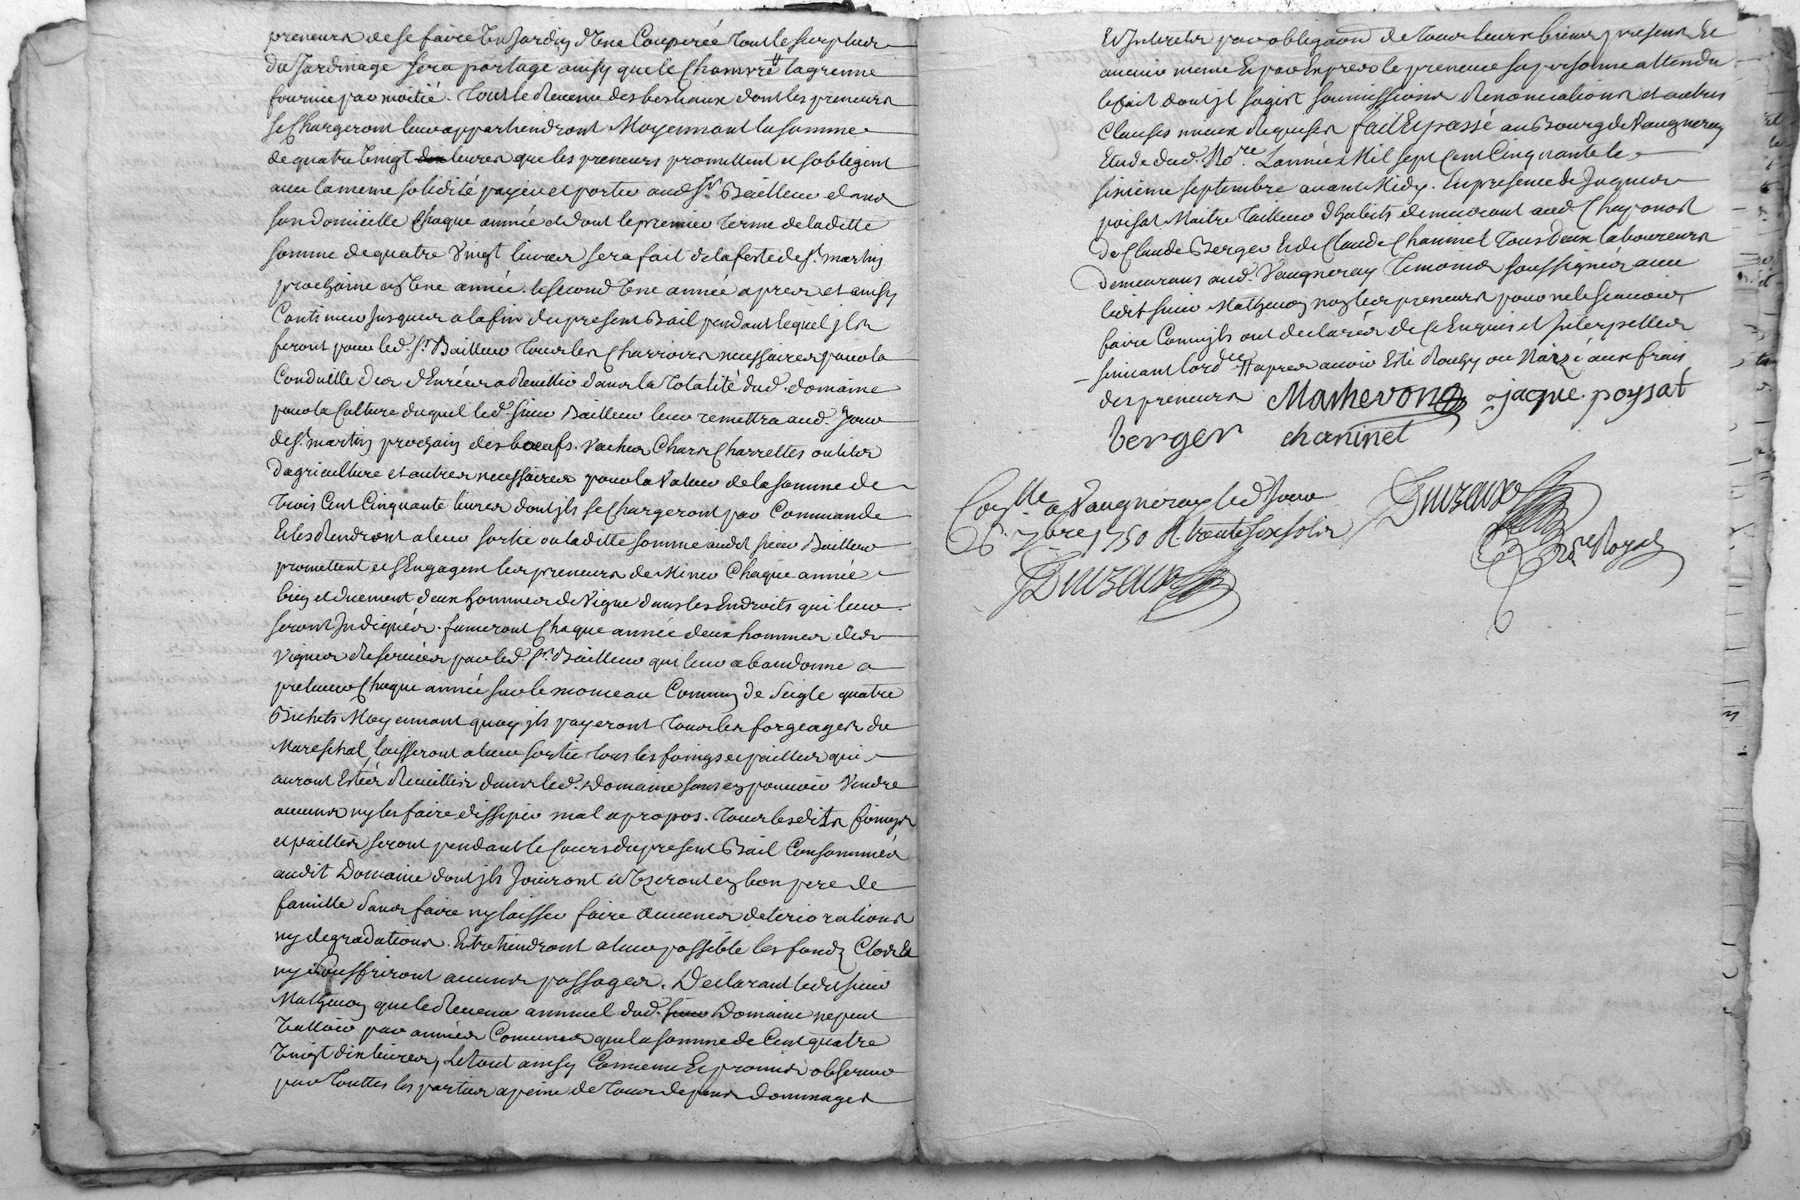 preneurs de se faire un jardin d'une Couperée tout le surplus
du Jardinage sera partage ainsy que le Chamvre la grenne
fournie par moitié. Tout le Revenu des bestiaux dont les preneurs
se Chargeront leur appartiendront Moyennant la somme
de quatre vingt dix livres que les preneurs promettent et sobligent
avec la meme solidité payer et porter aud. Sr. Bailleur dans
son domicille Chaque année et dont le premier terme de laditte
somme de quatre vingt livres sera fait de la feste de St. martin
prochaine en une année. le second une année apres et ainsy
Continuer Jusques a la fin du present Bail pendant lequel Jls
feront pour led. Sr. Bailleur tous les Charrois necessaires pour la
Conduitte des d'Enrées a Reuillir dans la totalité dud. domaine
pour la Culture duquel led. sieur Bailleur leur remettra aud. Jour
de St. martin prochain des bœufs. vaches Chars Charrettes outils
dagriculture et autres necessaires pour la valeur de la somme de
trois Cent Cinquante livres dont jls se Chargeront par Commande
Et les Rendront a leur sortie ou laditte somme audit sieur Bailleur
promettent et s'Engagent les preneurs de Miner Chaque année
bien et duement deux hommes de Vigne dans les Endroits qui leur
seront Jndiqués. fumeront Chaque année deux hommes des
Vignes Reservées par led. Sr. Bailleur qui leur abandonne a
prelever Chaque année sur le monceau Commun de seigle quatre
Bichets Moyennant quoy jls payeront tous les forgeages du
Mareschal, laisseront a leur sortie tous les foings et pailles qui
auront Estés Reuillis dans led. Domaine sans en pouvoir Vendre
aucuns ny les faire dissiper mal apropos. Tous lesdits foings
et pailles seront pendant le Cours du present Bail Consommés
audit Domaine dont jls Jouiront et Useront en bon pere de
famille sans faire ny laisser faire aucunes deteriorations
ny degradations. Entretiendront a leur possible les fondz Clos Et
ny souffriront aucuns passages. Declarant ledit sieur
Mathevon que le Revenu annuel dud. sieur Domaine ne peut
Valloir par années Comunes que la somme de Cent quatre
vingt dix livres, Le tout ainsy Convenu Et promis observer
par touttes les parties a peine de tous depens dommages
Et Interets par obligaôn de tous leurs biens presens Et
avenir meme Et par Expres le preneur sa personne attendu
le fait dont jl sagist soumissions Renonciations et autres
Clauses mieux Requises fait Et passé au Bourg de Vaugneray
Etude dud. No.re L'année Mil sept Cent Cinquante le
sixieme septembre avant Midy. En presence de Jaques
poisat Maitre Tailleur d'habits demeurant aud. Chaponost
De Claude Berger Et de Claude Chaninel Tous Deux laboureurs
Demeurans aud. Vaugneray Temoins soussignes avec
ledit sieur Mathevon non les preneurs pour ne le scavoir
faire Comme jls ont declarés de ce Enquis et Jnterpellés
suivant lord.ce Apres avoir Esté
des preneurs Mathevon jaque. poysat
berger chaninel
Con.lle a Vaugneray led. Jour
6. 7bre 1750 R. trente six sols
No.re Royal